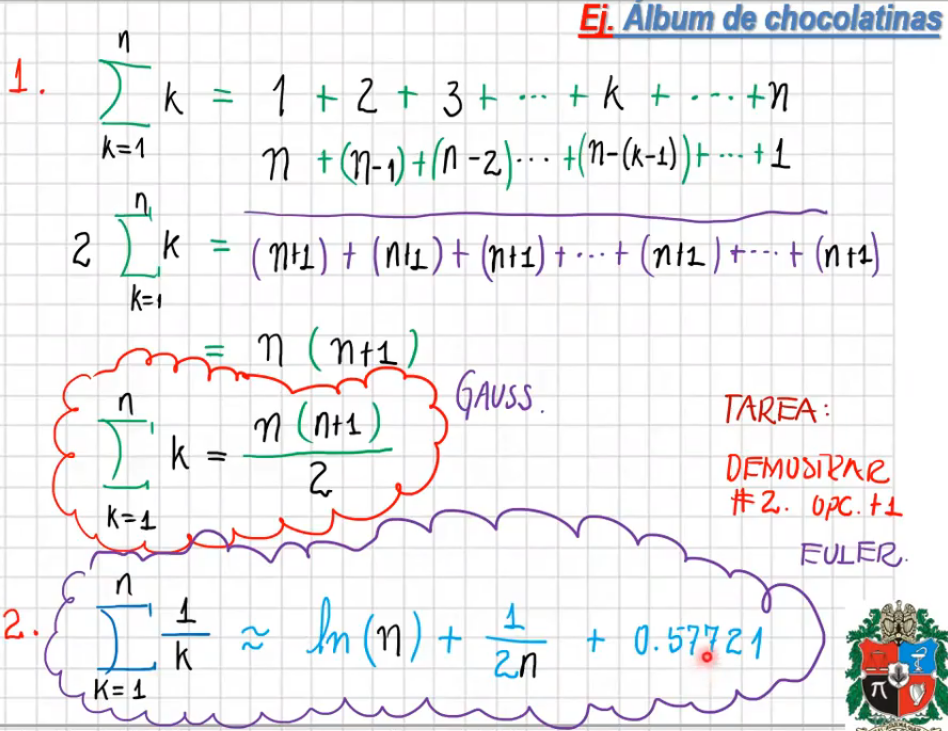 Ej. Álbum de chocolatinas
1. n ∑ k=1 k = 1 + 2 + 3 + ... + k + ... + n
n + (n-1) + (n-2) ... + (n-(k-1)) + ... + 1
2 n ∑ k=1 k = (n+1) + (n+1) + (n+1) + ... + (n+1) + ... + (n+1)
= n (n+1)
n ∑ k=1 k = n (n+1) / 2
GAUSS.
TAREA:
DEMOSTRAR
#2. OPC. +1
EULER.
2. n ∑ k=1 1/k ≈ ln(n) + 1/2n + 0.57721
π